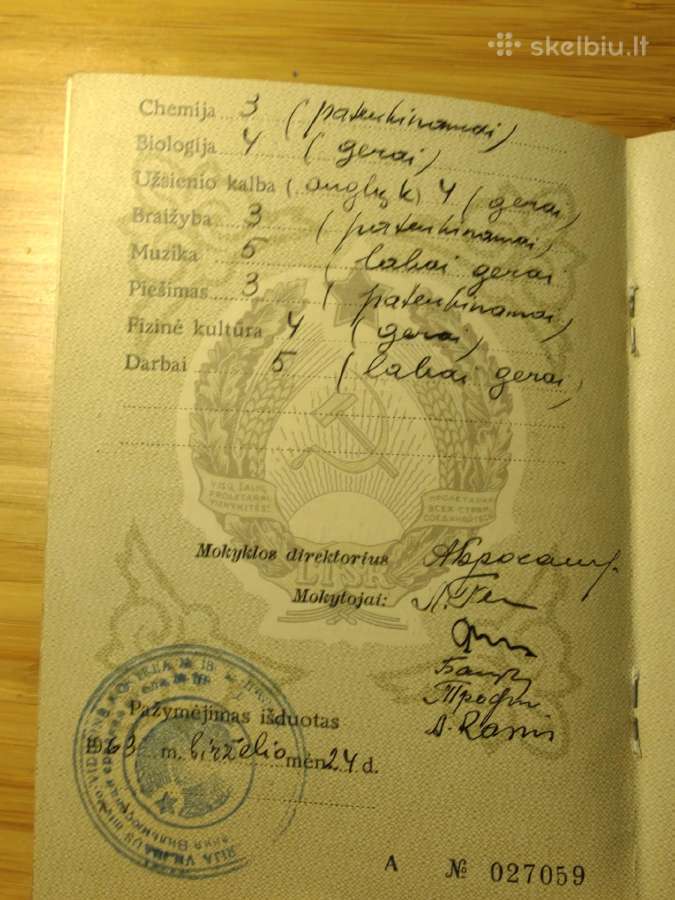 skelbiu.lt
Chemija 3 (patenkinamai)
Biologija 4 (gerai)
Užsienio kalba (anglų k) 4 (gerai)
Braižyba 3 (patenkinamai)
Muzika 5 (labai gerai
Piešimas 3 (patenkinamai)
Fizinė kultūra 4 (gerai)
Darbai 5 (labai gerai)
VISŲ ŠALIŲ
PROLETARAI
VIENYKITĖS!
ПРОЛЕТАРИИ
ВСЕХ СТРАН
СОЕДИНЯЙТЕСЬ
LTSR
Mokyklos direktorius
Mokytojai:
Pažymėjimas išduotas
1963 m. birželio mėn 24 d.
A № 027059